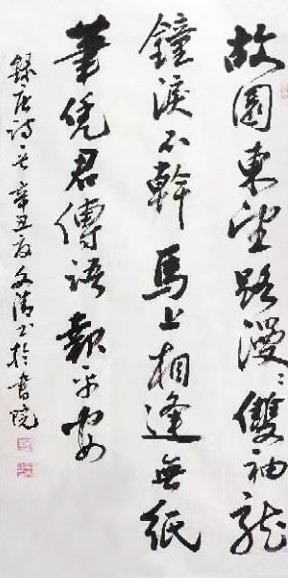 故園東望路漫漫雙袖龍
鐘淚不幹馬上相逢無紙
筆凭君傳語報平安
録唐诗一首辛丑夏文清书於書院